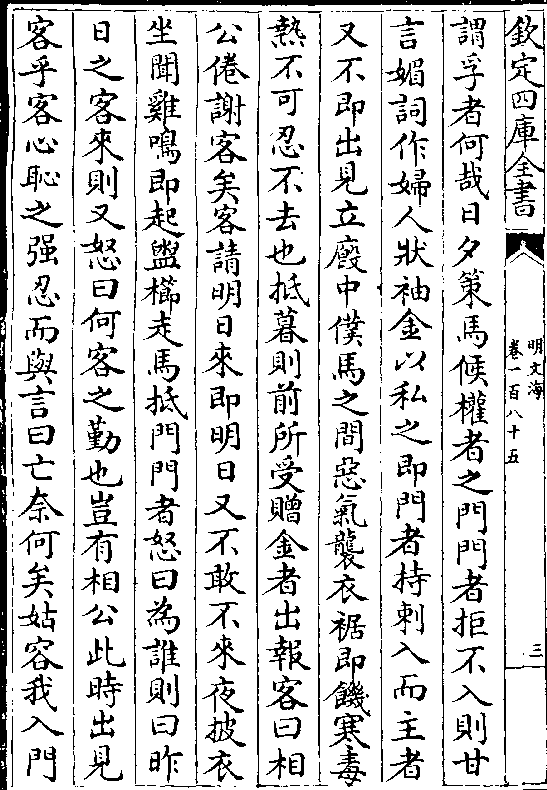 欽定四庫全書
明文海
卷一百八十五
三
謂孚者何哉日夕策馬候權者之門門者拒不入則甘
言媚詞作婦人狀袖金以私之即門者持刺入而主者
又不即出見立廄中僕馬之間惡氣襲衣裾即饑寒毒
熱不可忍不去也抵暮則前所受贈金者出報客曰相
公倦謝客矣客請明日來即明日又不敢不來夜披衣
坐聞雞鳴即起盥櫛走馬抵門門者怒曰為誰則曰昨
日之客來則又怒曰何客之勤也豈有相公此時出見
客乎客心恥之强忍而與言曰亡奈何矣姑容我入門